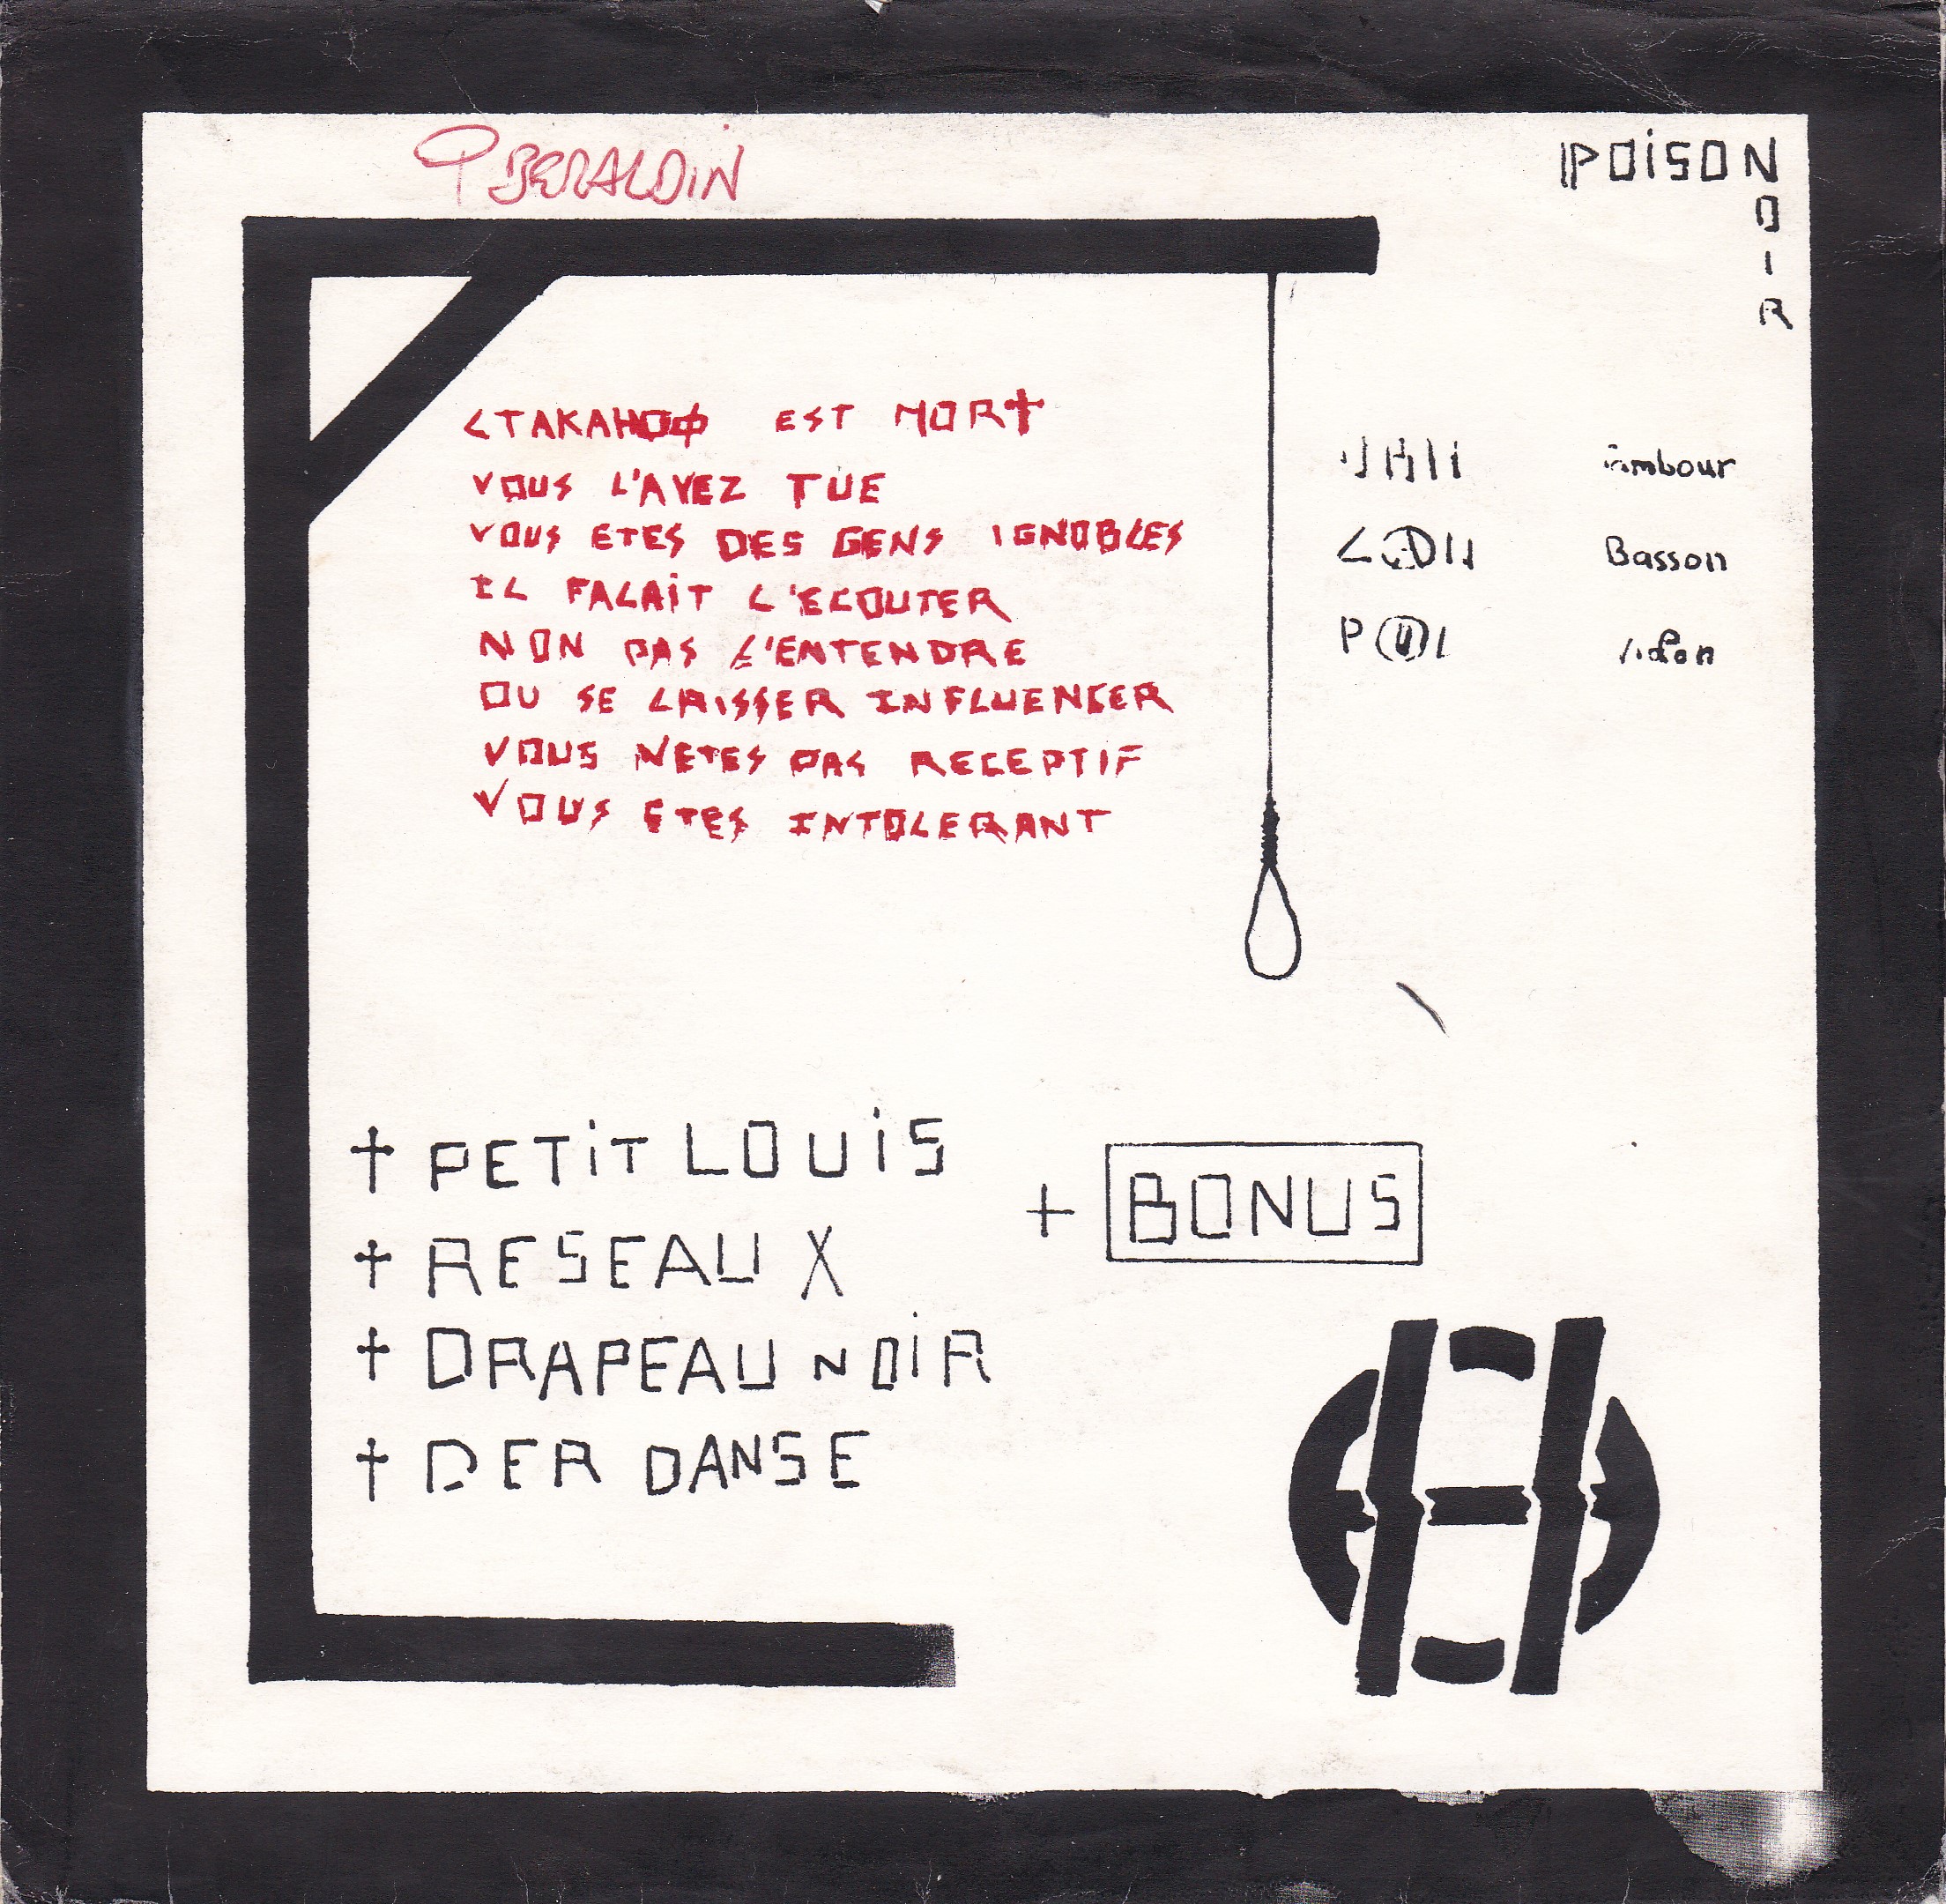 BERALDIN
POISON
NOIR
CTAKAHOO EST MORT
VOUS L'AVEZ TUE
VOUS ETES DES GENS IGNOBLES
IL FALAIT L'ECOUTER
NON PAS L'ENTENDRE
OU SE LAISSER INFLUENCER
VOUS NETES PAS RECEPTIF
VOUS ETES INTOLERANT
Basson
PETIT LOUIS
RESEAU X
DRAPEAU NOIR
DER DANSE
+ BONUS